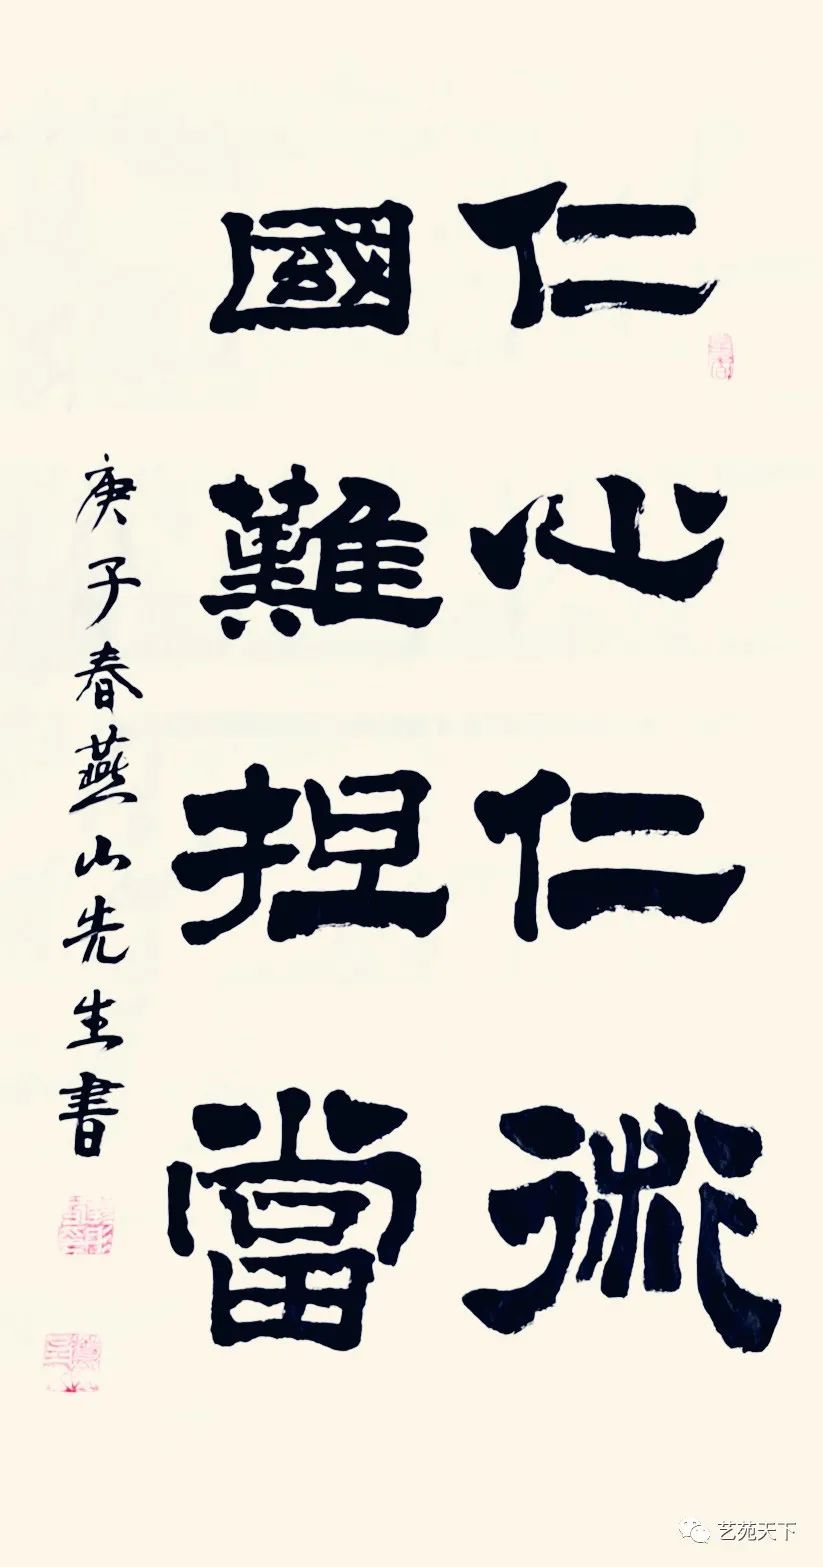 仁心仁術
國難担當
庚子春燕山先生書
艺苑天下